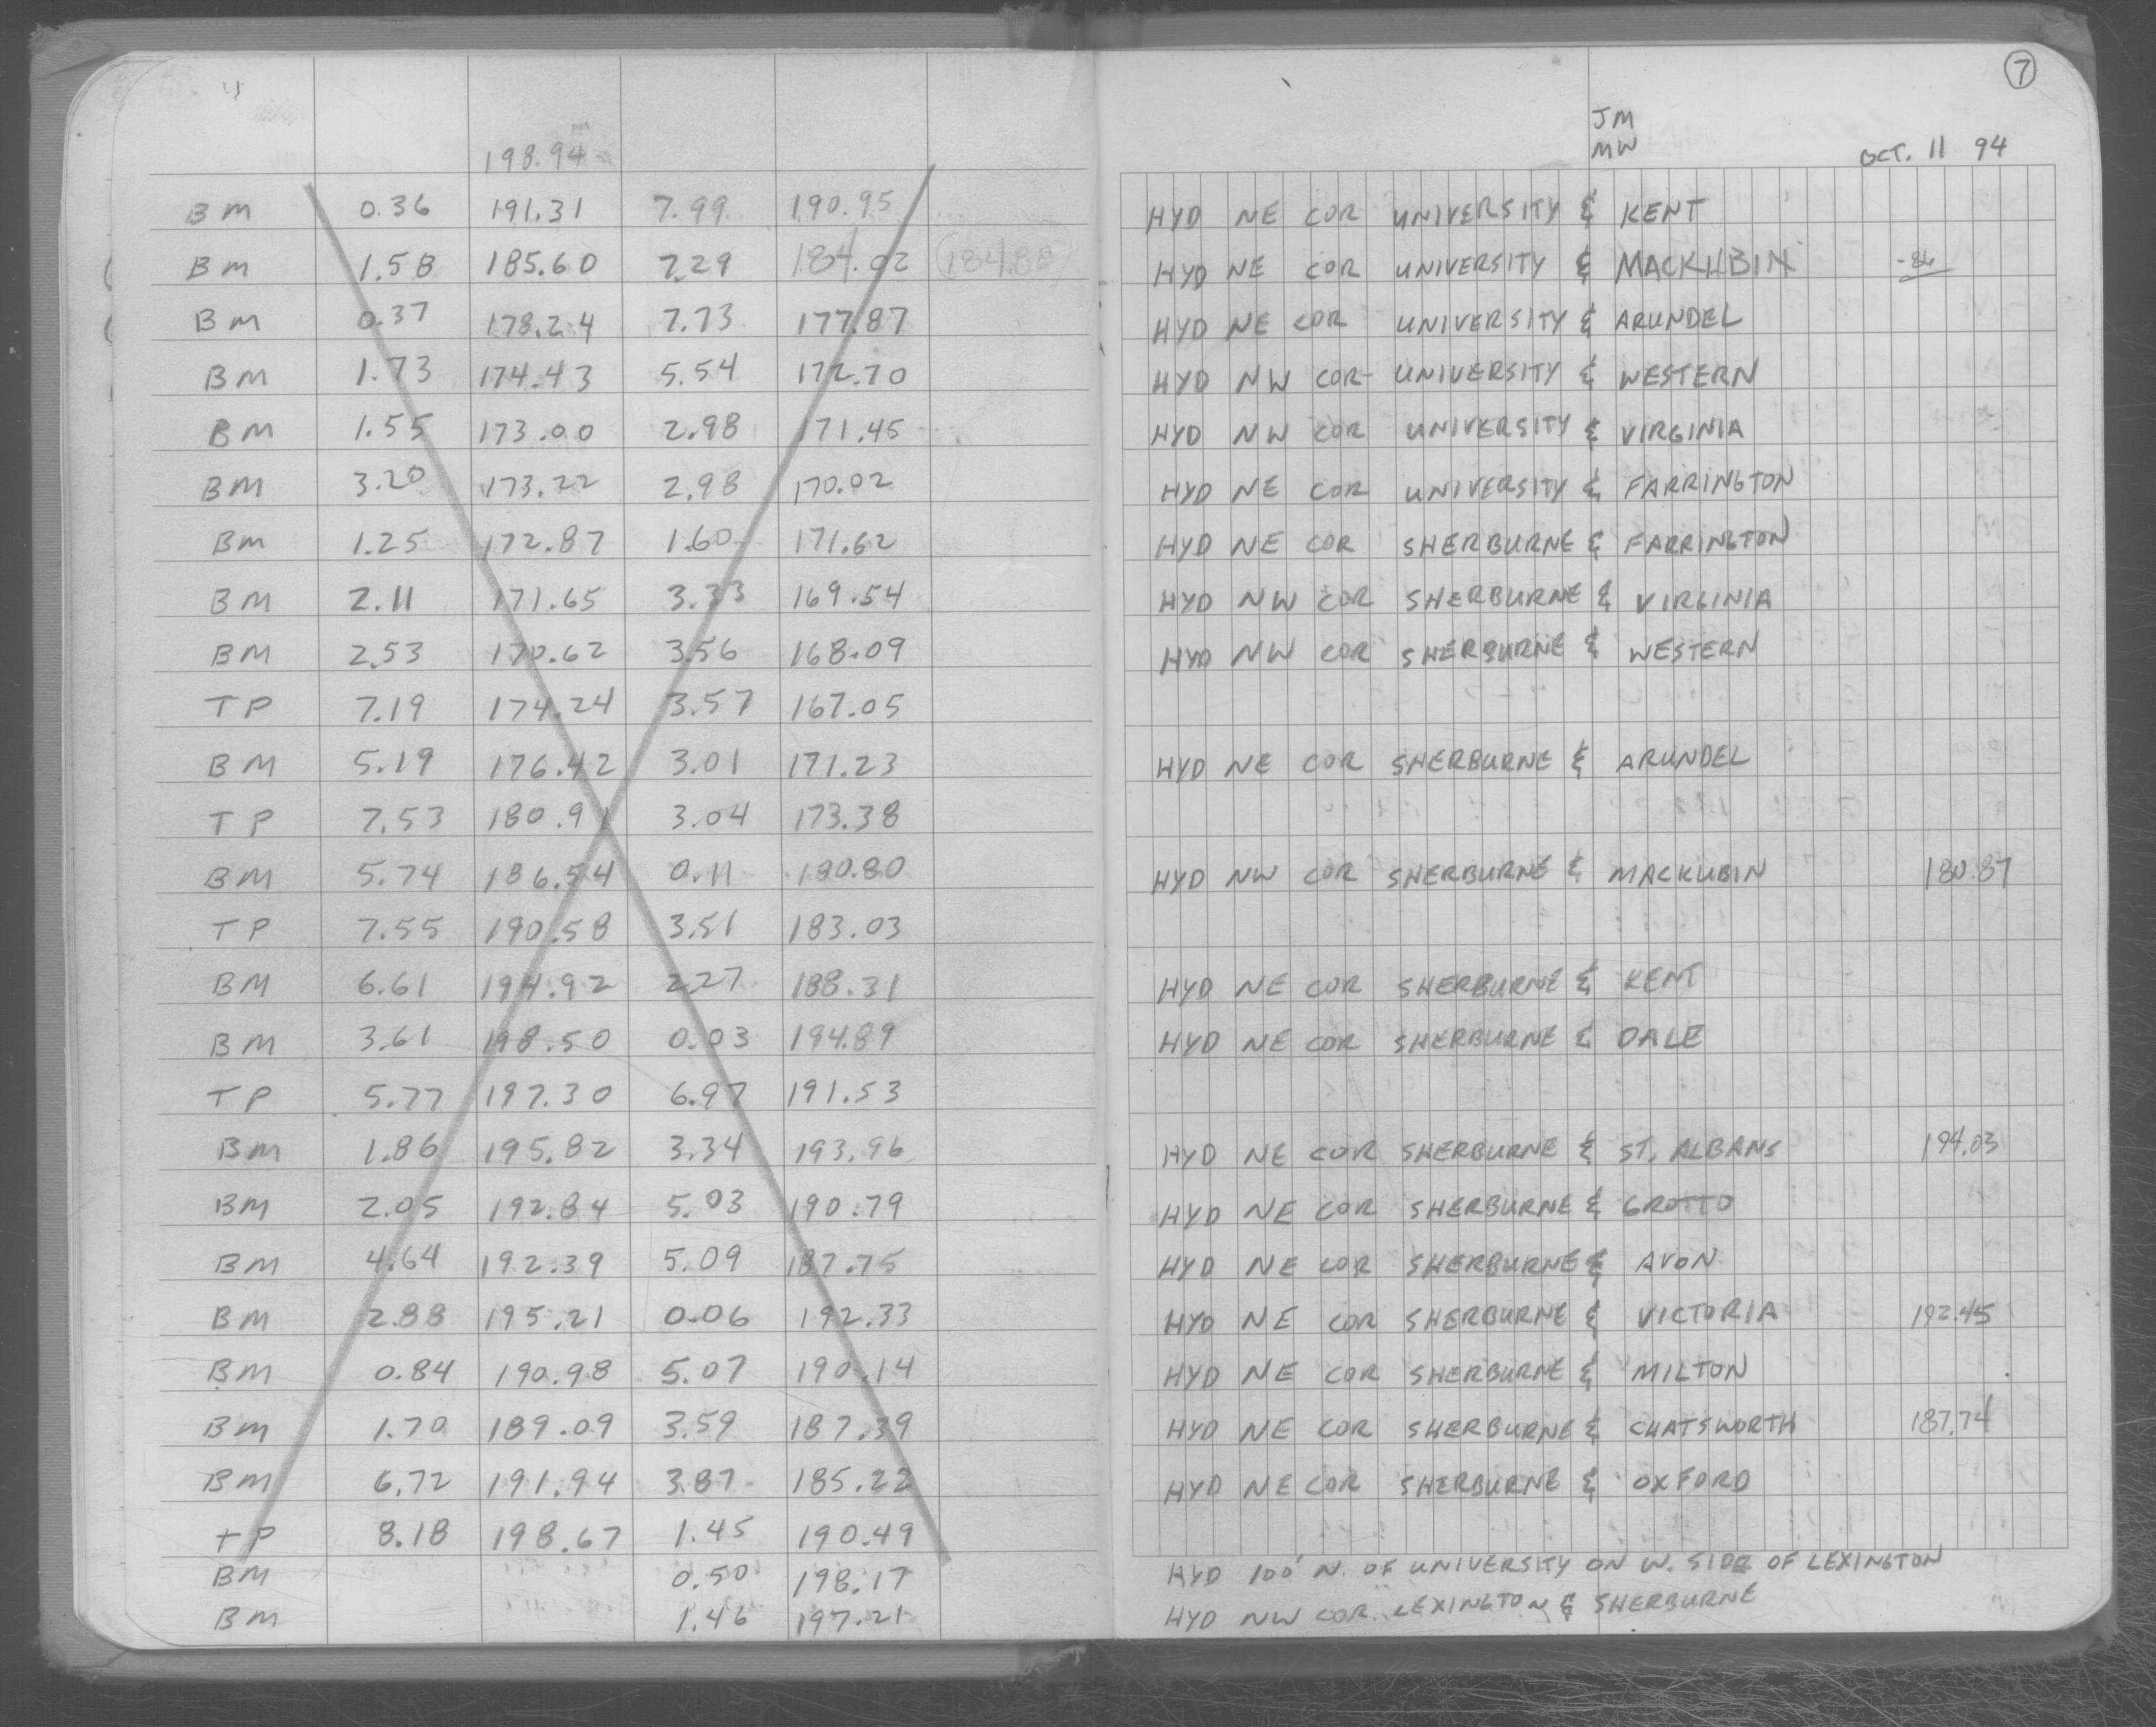 7
JM
MW OCT. 11 94
198.94
BM 0.36 191.31 7.99 190.95 HYD NE COR UNIVERSITY & KENT
BM 1.58 185.60 7.29 184.02 184.88 HYD NE COR UNIVERSITY & MACKUBIN -.86
BM 0.37 178.24 7.73 177.87 HYD NE COR UNIVERSITY & ARUNDEL
BM 1.73 174.43 5.54 172.70 HYD NW COR UNIVERSITY & WESTERN
BM 1.55 173.00 2.98 171.45 HYD NW COR UNIVERSITY & VIRGINIA
BM 3.20 173.22 2.98 170.02 HYD NE COR UNIVERSITY & FARRINGTON
BM 1.25 172.87 1.60 171.62 HYD NE COR SHERBURNE & FARRINGTON
BM 2.11 171.65 3.33 169.54 HYD NW COR SHERBURNE & VIRGINIA
BM 2.53 170.62 3.56 168.09 HYD NW COR SHERBURNE & WESTERN
TP 7.19 174.24 3.57 167.05
BM 5.19 176.42 3.01 171.23 HYD NE COR SHERBURNE & ARUNDEL
TP 7.53 180.91 3.04 173.38
BM 5.74 186.54 0.11 180.80 HYD NW COR SHERBURNE & MACKUBIN 180.87
TP 7.55 190.58 3.51 183.03
BM 6.61 194.92 2.27 188.31 HYD NE COR SHERBURNE & KENT
BM 3.61 198.50 0.03 194.89 HYD NE COR SHERBURNE & DALE
TP 5.77 197.30 6.97 191.53
BM 1.86 195.82 3.34 193.96 HYD NE COR SHERBURNE & ST. ALBANS 194.03
BM 2.05 192.84 5.03 190.79 HYD NE COR SHERBURNE & GROTTO
BM 4.64 192.39 5.09 187.75 HYD NE COR SHERBURNE & AVON
BM 2.88 195.21 0.06 192.33 HYD NE COR SHERBURNE & VICTORIA 192.45
BM 0.84 190.98 5.07 190.14 HYD NE COR SHERBURNE & MILTON
BM 1.70 189.09 3.59 187.39 HYD NE COR SHERBURNE & CHATSWORTH 187.74
BM 6.72 191.94 3.87 185.22 HYD NE COR SHERBURNE & OXFORD
TP 8.18 198.67 1.45 190.49
BM 0.50 198.17 HYD 100' N. OF UNIVERSITY ON W. SIDE OF LEXINGTON
BM 1.46 197.21 HYD NW COR. LEXINGTON & SHERBURNE